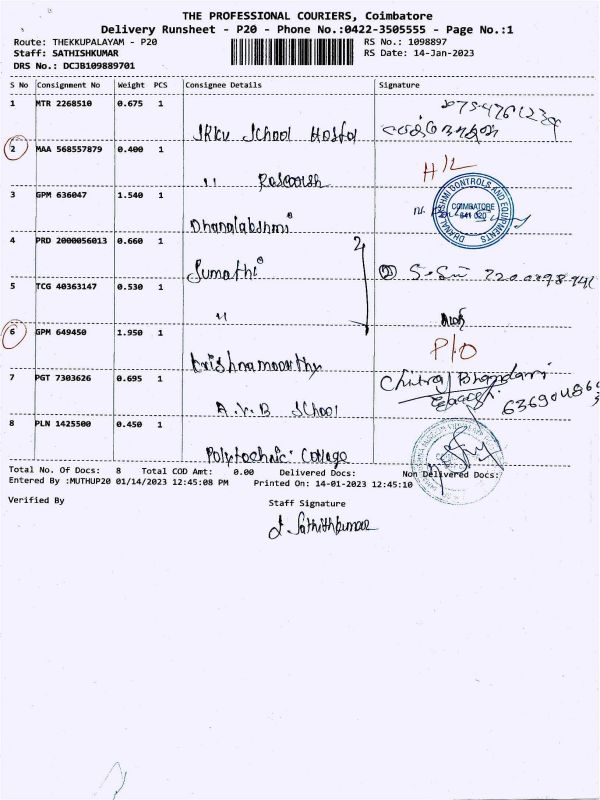 THE PROFESSIONAL COURIERS, Coimbatore
Delivery Runsheet - P20 - Phone No.:0422-3505555 - Page No.:1
Route: THEKKUPALAYAM - P20 RS No.: 1098897
Staff: SATHISHKUMAR RS Date: 14-Jan-2023
DRS No.: DCJB109889701
S No Consignment No Weight PCS Consignee Details Signature
1 MTR 2268510 0.675 1
School Hostel
2 MAA 568557879 0.400 1 H/L
"
3 GPM 636047 1.540 1
Dhanalakshmi
DHANALAKSHMI CONTROLS AND EQUIPMENTS
COIMBATORE
641 020
4 PRD 2000056013 0.660 1 2
Sumathi
5 TCG 40363147 0.530 1
"
6 GPM 649450 1.950 1 P/O
Krishnamoorthy
7 PGT 7303626 0.695 1 Chitra Bhandari
A.V.B School
8 PLN 1425500 0.450 1
Polytechnic College
Total No. Of Docs: 8 Total COD Amt: 0.00 Delivered Docs: Non Delivered Docs:
Entered By :MUTHUP20 01/14/2023 12:45:08 PM Printed On: 14-01-2023 12:45:10
Verified By Staff Signature